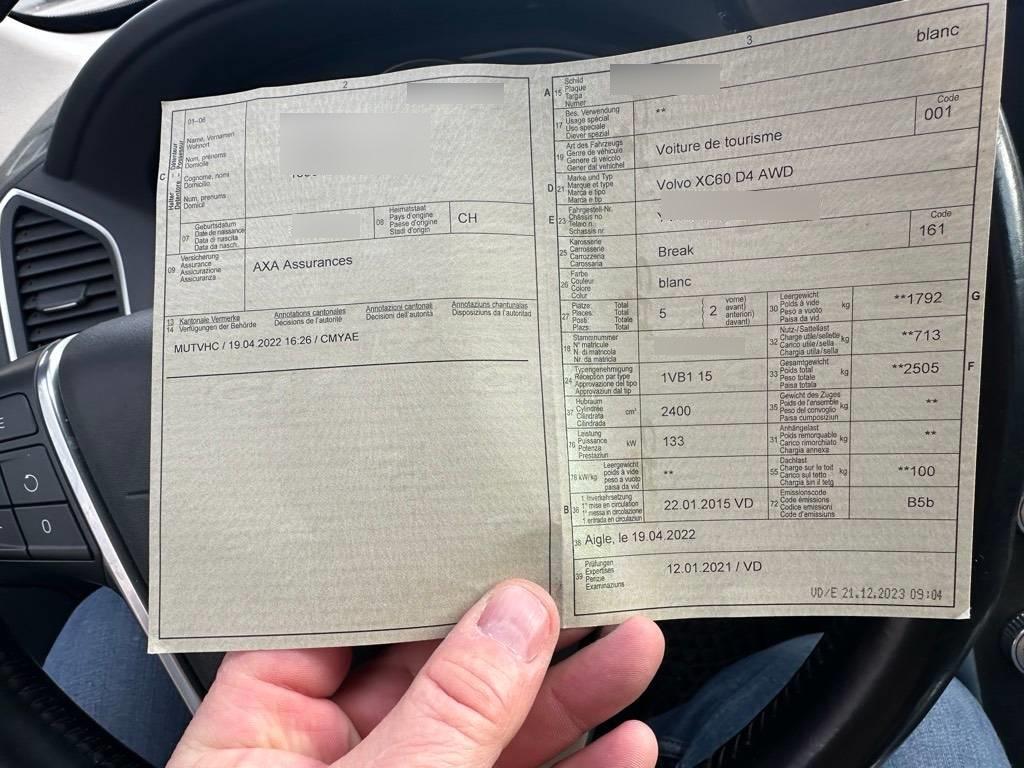 2
01–06
Name, Vornamen
Wohnort
Nom, prénoms
Domicile
Cognome, nomi
Domicilio
Num, prenums
Domicil
C
Halter
Détenteur
Detentore
Possessur
07
Geburtsdatum
Date de naissance
Data di nascita
Data da nasch.
08
Heimatstaat
Pays d'origine
Paese d'origine
Stadi d'origin
CH
09
Versicherung
Assurance
Assicurazione
Assicuranza
AXA Assurances
13
14
Kantonale Vermerke
Verfügungen der Behörde
Annotations cantonales
Décisions de l'autorité
Annotazioni cantonali
Decisioni dell'autorità
Annotaziuns chantunalas
Disposiziuns da l'autoritad
MUTVHC / 19.04.2022 16:26 / CMYAE
3
blanc
A 15
Schild
Plaque
Targa
Numer
17
Bes. Verwendung
Usage spécial
Uso speciale
Diever spezial
**
19
Art des Fahrzeugs
Genre de véhicule
Genere di veicolo
Gener dal vehichel
Voiture de tourisme
Code
001
D 21
Marke und Typ
Marque et type
Marca e tipo
Marca e tip
Volvo XC60 D4 AWD
E 23
Fahrgestell-Nr.
Châssis no
Telaio n.
Schassis nr.
25
Karosserie
Carrosserie
Carrozzeria
Carossaria
Break
Code
161
26
Farbe
Couleur
Colore
Colur
blanc
27
Plätze: Total
Places: Total
Posti: Totale
Plazs: Total
5
2
vorne)
avant)
anteriori)
davant)
30
Leergewicht
Poids à vide
Peso a vuoto
Paisa da vid
kg
**1792
G
18
Stammnummer
N° matricule
N. di matricola
Nr. da matricla
32
Nutz-/Sattellast
Charge utile/sellette
Carico utile/sella
Chargia utila/sella
kg
**713
24
Typengenehmigung
Réception par type
Approvazione del tipo
Approvaziun dal tip
1VB1 15
33
Gesamtgewicht
Poids total
Peso totale
Paisa totala
kg
**2505
F
37
Hubraum
Cylindrée
Cilindrata
Cilindrada
cm³
2400
35
Gewicht des Zuges
Poids de l'ensemble
Peso del convoglio
Paisa cumposiziun
kg
**
76
Leistung
Puissance
Potenza
Prestaziun
kW
133
31
Anhängelast
Poids remorquable
Carico rimorchiato
Chargia annexa
kg
**
78 kW/kg
Leergewicht
poids à vide
peso a vuoto
paisa da vid
**
55
Dachlast
Charge sur le toit
Carico sul tetto
Chargia sin il tetg
kg
**100
B 36
1. Inverkehrsetzung
1re mise en circulation
1a messa in circolazione
1. entrada en circulaziun
22.01.2015 VD
72
Emissionscode
Code émissions
Codice emissioni
Code d'emissiuns
B5b
38
Aigle, le 19.04.2022
39
Prüfungen
Expertises
Perizie
Examinaziuns
12.01.2021 / VD
VD/E 21.12.2023 09:04
0